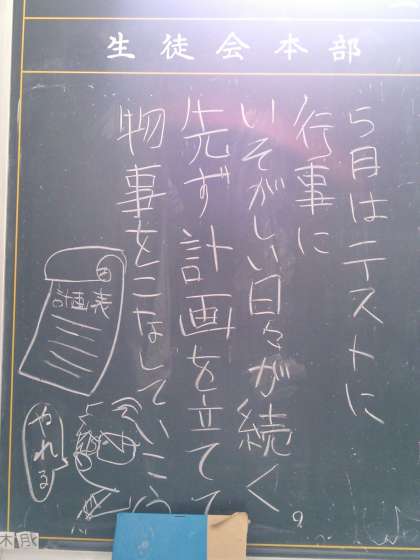 生徒会本部
5月はテストに
行事に
いそがしい日々が続く。
先ず計画を立てて
物事をこなしていこう
計画表
やれる